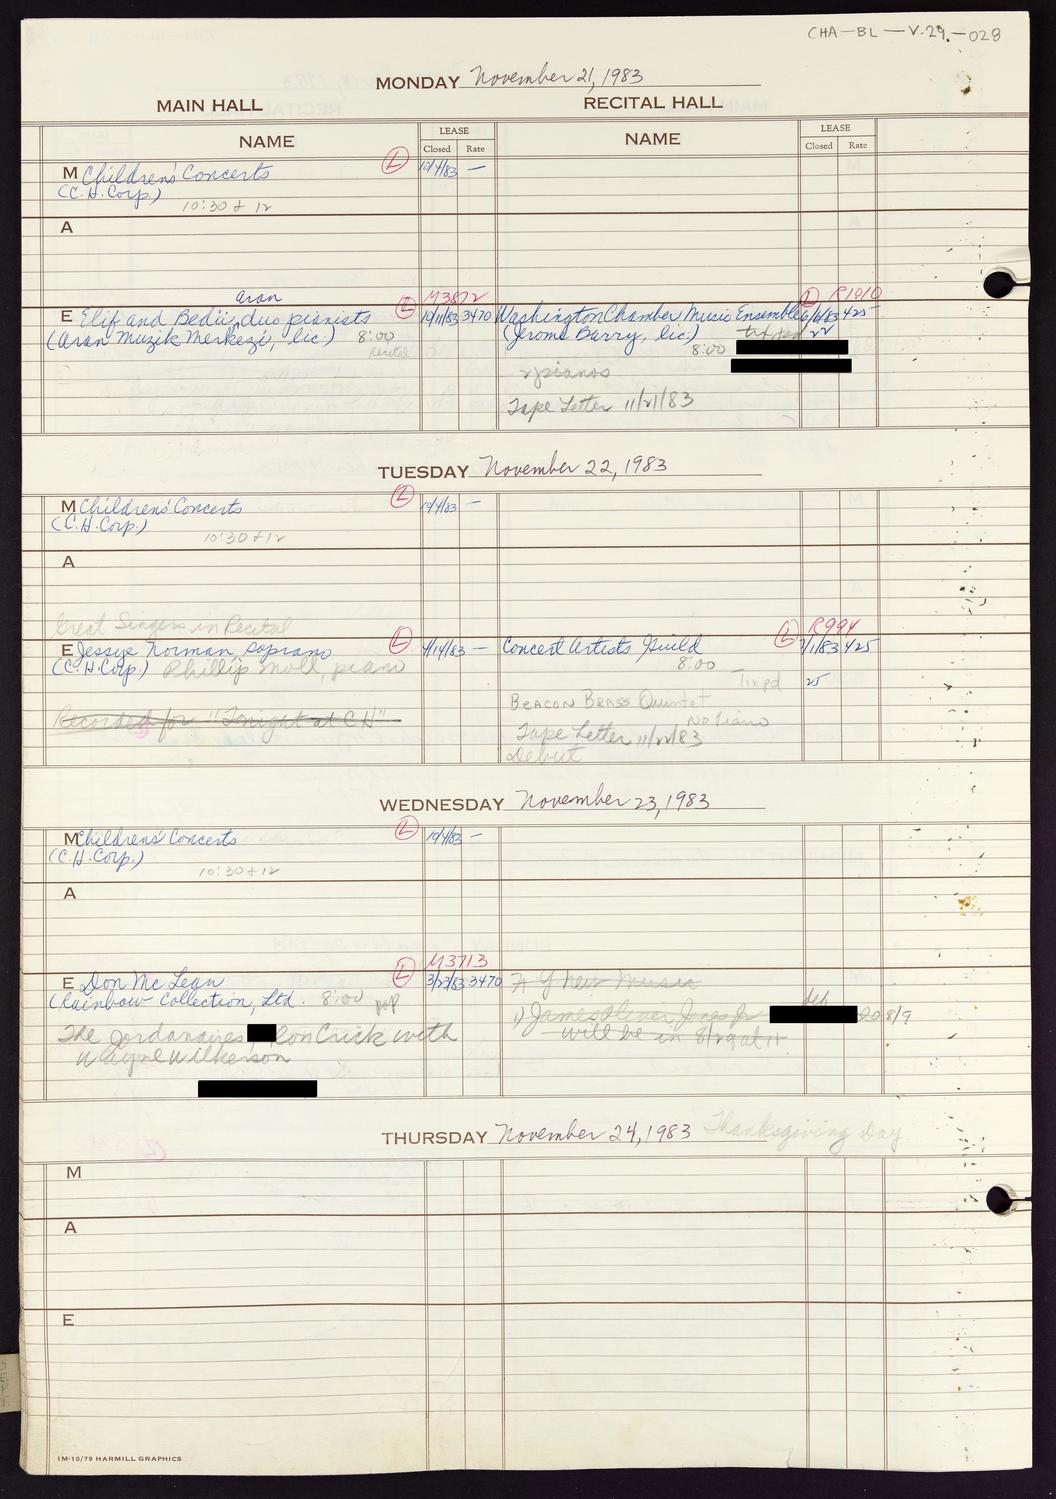 CHA-BL-V.29.-028
MONDAY November 21, 1983
MAIN HALL RECITAL HALL
NAME LEASE NAME LEASE
Closed Rate Closed Rate
M Children's Concerts L 10/4/83 —
(C.H. Corp.)
10:30 & 12
A
Aran M3872 L R1010
E Elif and Bedii, duo pianists L 10/11/83 3470 Washington Chamber Music Ensemble 6/6/83 425
(Aran Muzik Merkezi, lic.) 8:00 (Jerome Barry, lic.) 22
recital 8:00
2 pianos
Tape Letter 11/21/83
TUESDAY November 22, 1983
M Children's Concerts L 10/4/83 —
(C.H. Corp.)
10:30 & 12
A
Great Singers in Recital R994
E Jessye Norman, soprano L 4/14/83 — Concert Artists Guild L 7/1/83 425
(C.H. Corp.) Phillip Moll, piano 8:00
Tix pd 25
Recorded for "Tonight at C H" Beacon Brass Quintet
No Piano
Tape Letter 11/22/83
Debut
WEDNESDAY November 23, 1983
M Children's Concerts L 10/4/83 —
(C.H. Corp.)
10:30 & 12
A
M3713
E Don McLean L 3/23/83 3470 N Y New Music
(Rainbow Collection, Ltd. 8:00 pop dep
1) James Oliver Jones Jr 8/9
The Jordanaires Ron Crick with will be in 8/29 at 11
Wayne Wilkerson
THURSDAY November 24, 1983 Thanksgiving Day
M
A
E
1M-10/79 HARMILL GRAPHICS